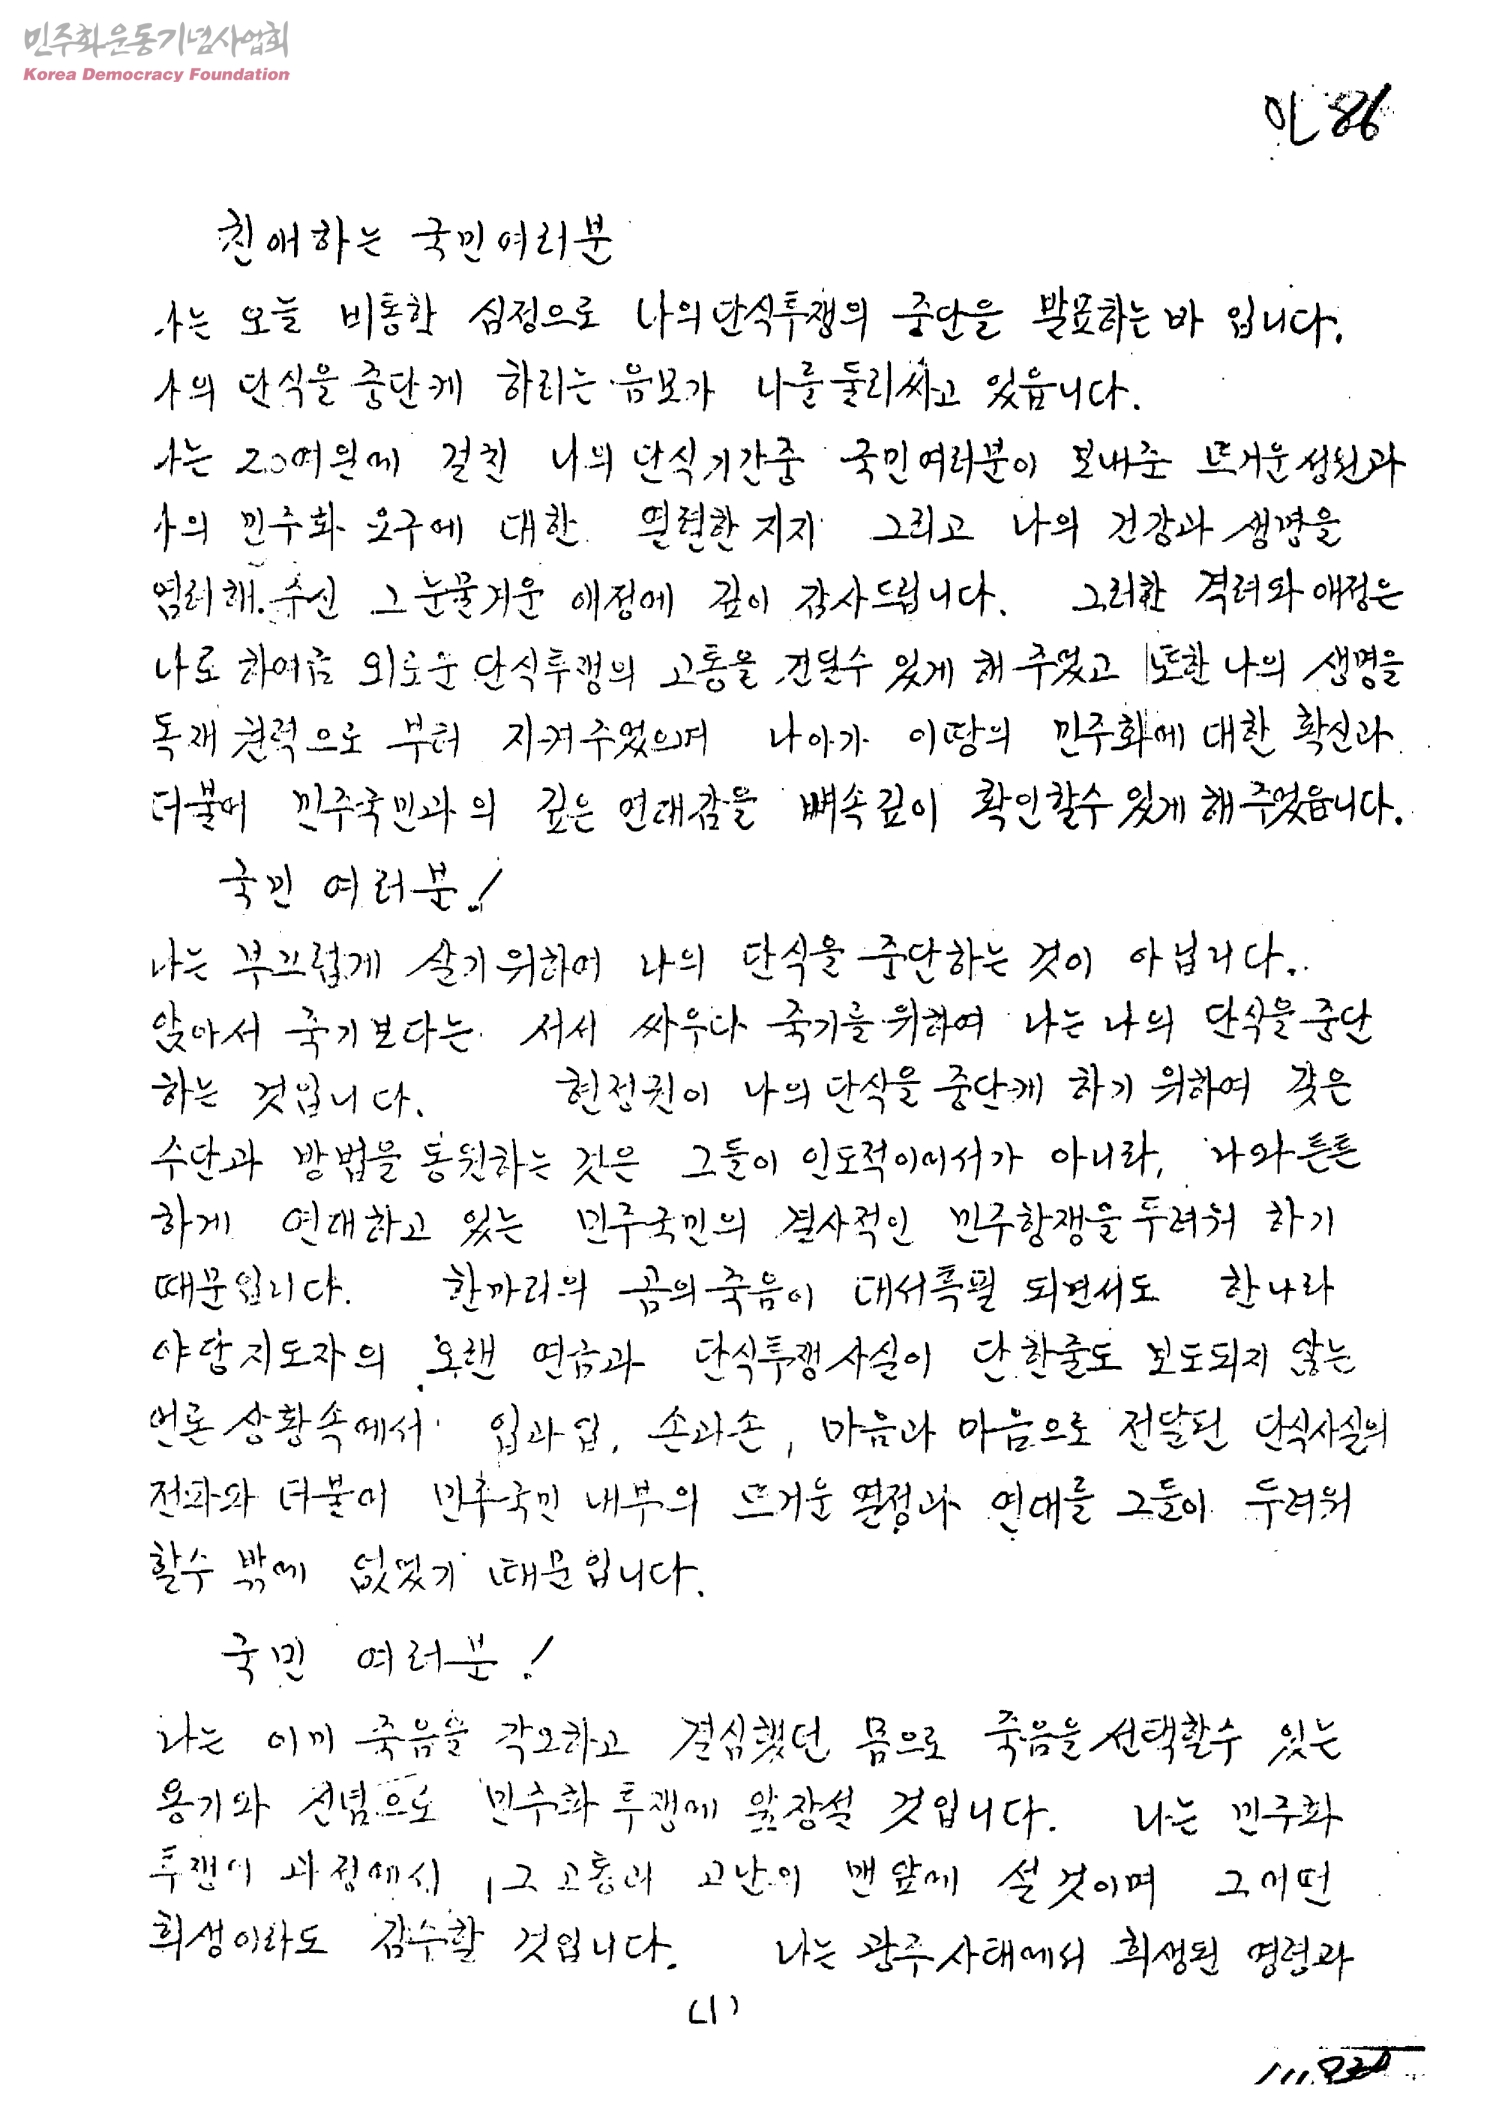 민주화운동기념사업회
Korea Democracy Foundation
86
친애하는 국민여러분
나는 오늘 비통한 심정으로 나의 단식투쟁의 중단을 발표하는 바 입니다.
나의 단식을 중단케 하려는 음모가 나를 둘러싸고 있읍니다.
나는 20여일에 걸친 나의 단식기간중 국민여러분이 보내준 뜨거운 성원과
나의 민주화 요구에 대한 열렬한 지지 그리고 나의 건강과 생명을
염려해 주신 그 눈물겨운 애정에 깊이 감사드립니다. 그러한 격려와 애정은
나로 하여금 외로운 단식투쟁의 고통을 견딜수 있게 해 주었고 또한 나의 생명을
독재 권력으로 부터 지켜주었으며 나아가 이땅의 민주화에 대한 확신과
더불어 민주국민과의 깊은 연대감을 뼈속 깊이 확인할수 있게 해 주었읍니다.
국민 여러분!
나는 부끄럽게 살기 위하여 나의 단식을 중단하는 것이 아닙니다.
앉아서 죽기 보다는 서서 싸우다 죽기를 위하여 나는 나의 단식을 중단
하는 것입니다. 현정권이 나의 단식을 중단케 하기 위하여 갖은
수단과 방법을 동원하는 것은 그들이 인도적이어서가 아니라, 나와 튼튼
하게 연대하고 있는 민주국민의 결사적인 민주항쟁을 두려워 하기
때문입니다. 한마리의 곰의 죽음이 대서특필 되면서도 한나라
야당 지도자의 오랜 연금과 단식투쟁 사실이 단 한줄도 보도되지 않는
언론 상황속에서 입과 입, 손과 손, 마음과 마음으로 전달된 단식사실의
전파와 더불어 민주국민 내부의 뜨거운 열정과 연대를 그들이 두려워
할수 밖에 없었기 때문입니다.
국민 여러분!
나는 이미 죽음을 각오하고 결심했던 몸으로 죽음을 선택할수 있는
용기와 신념으로 민주화 투쟁에 앞장설 것입니다. 나는 민주화
투쟁의 과정에서 그 고통과 고난의 맨 앞에 설 것이며 그 어떤
희생이라도 감수할 것입니다. 나는 광주사태에서 희생된 영령과
(1)